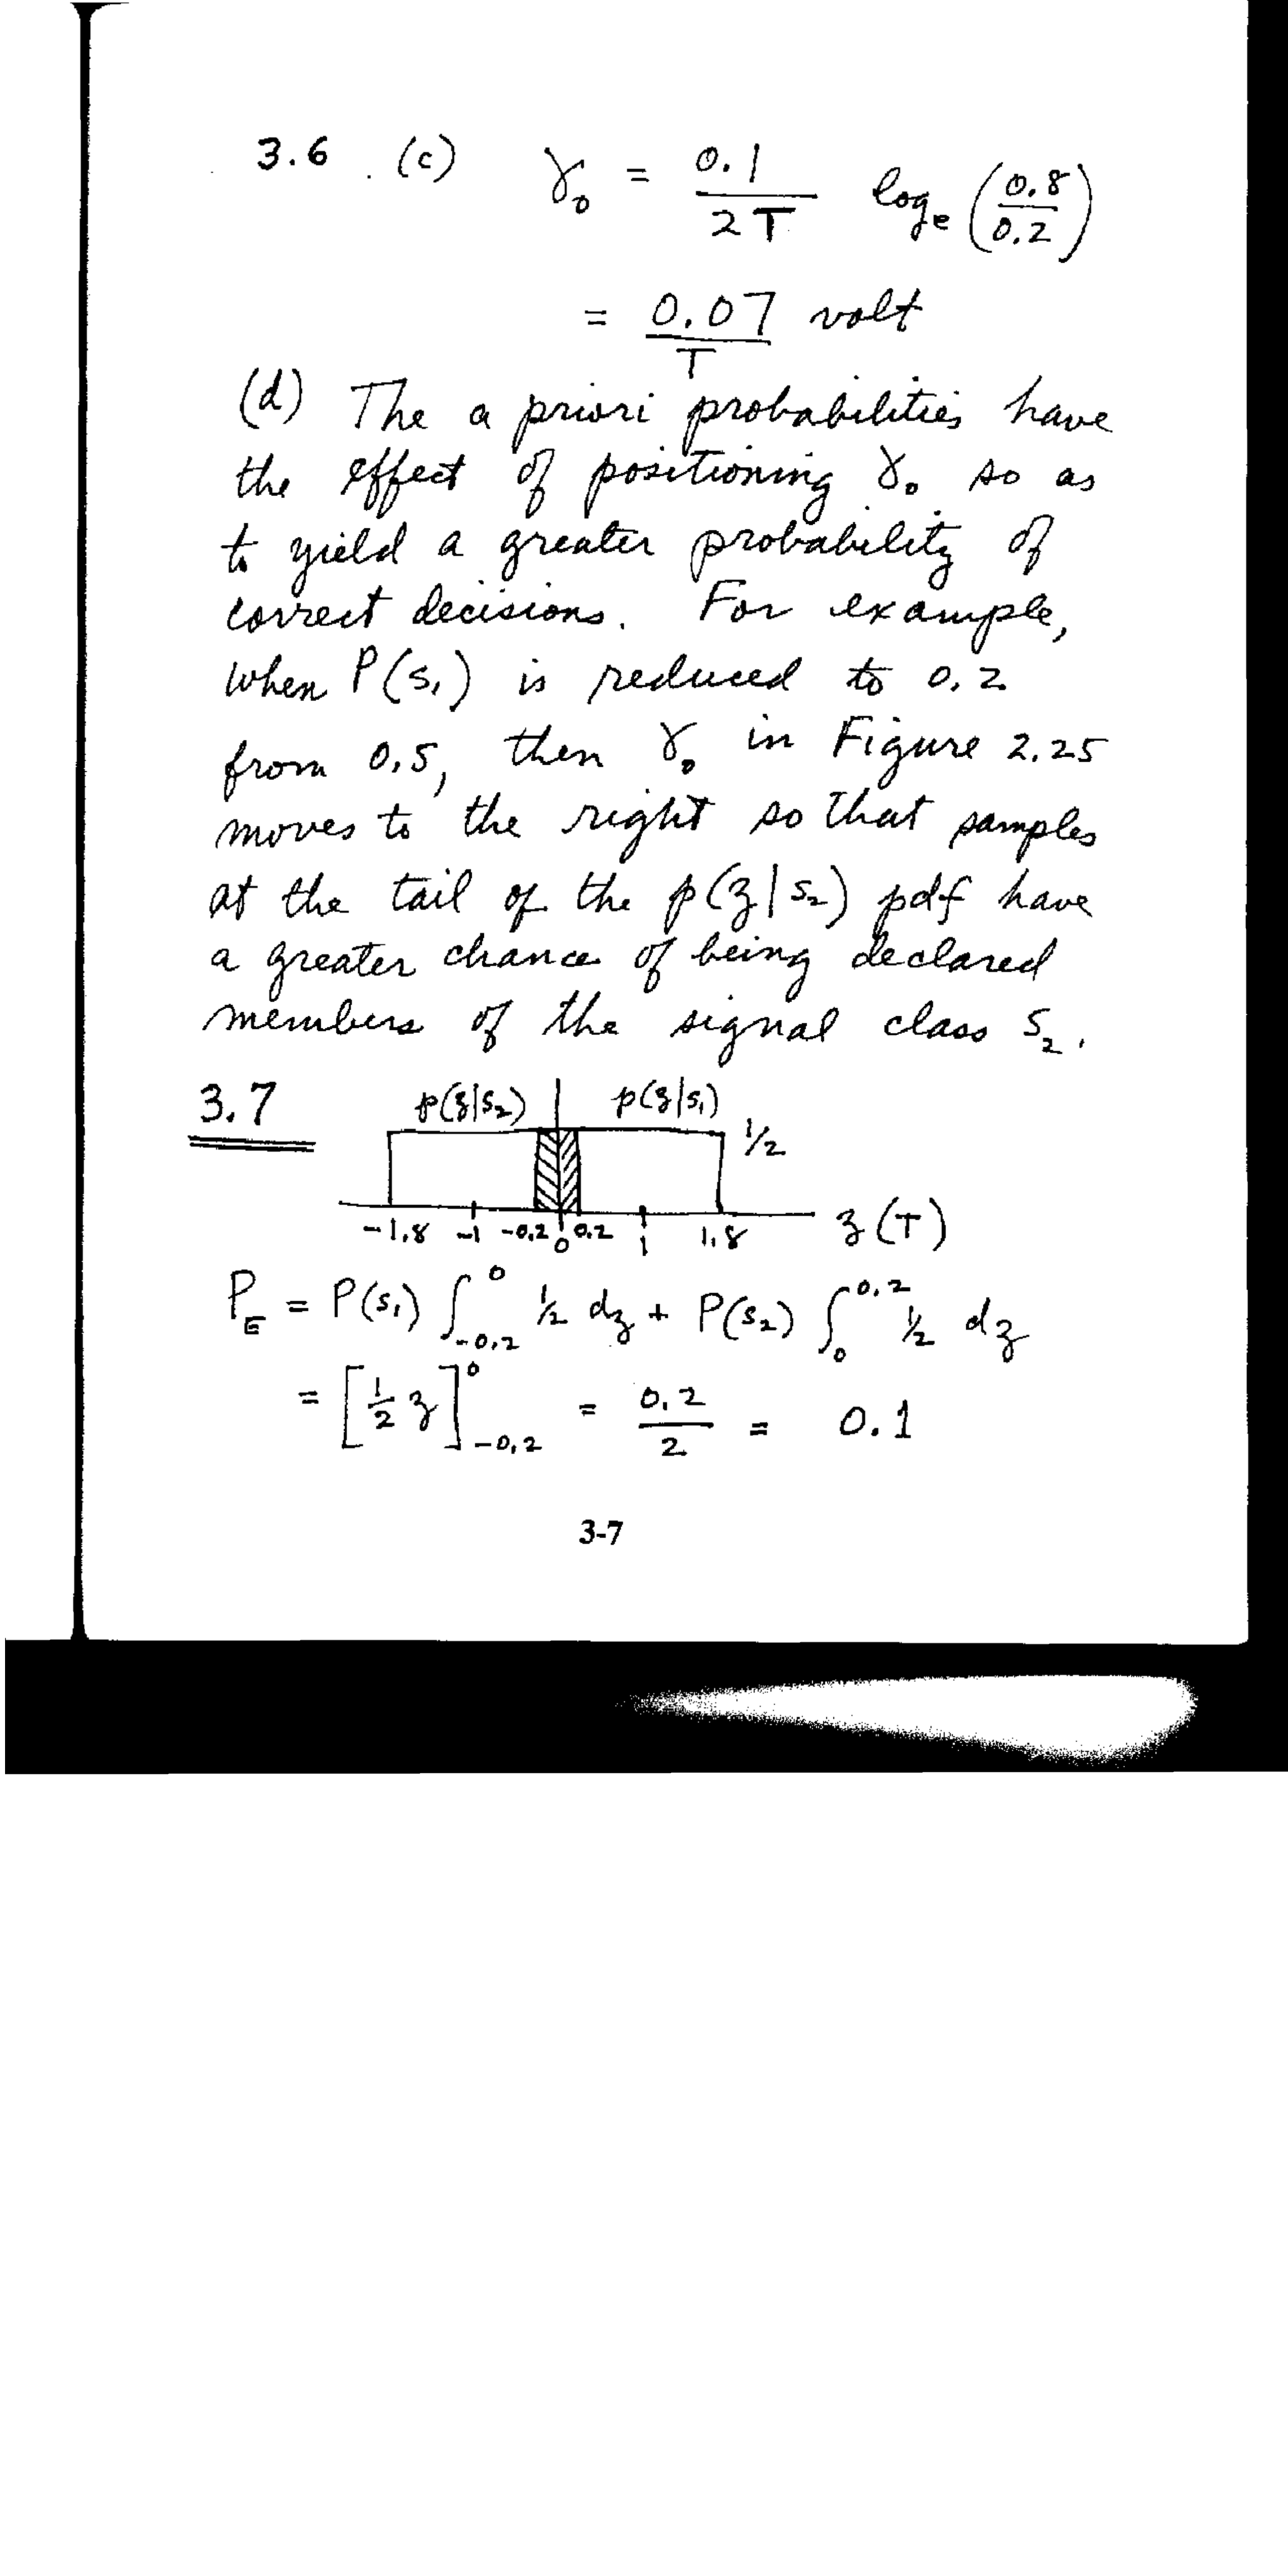 3.6 . (c) γ₀ = 0.1 / 2T logₑ (0.8 / 0.2)
= 0.07 / T volt
(d) The a priori probabilities have
the effect of positioning γ₀ so as
to yield a greater probability of
correct decisions. For example,
when P(s₁) is reduced to 0.2
from 0.5, then γ₀ in Figure 2.25
moves to the right so that samples
at the tail of the p(z|s₂) pdf have
a greater chance of being declared
members of the signal class s₂.
3.7 p(z|s₂) p(z|s₁)
1/2
-1.8 -1 -0.2 0 0.2 1 1.8 z(T)
P_E = P(s₁) ∫_{-0.2}^{0} 1/2 dz + P(s₂) ∫_{0}^{0.2} 1/2 dz
= [1/2 z]_{-0.2}^{0} = 0.2 / 2 = 0.1
3-7